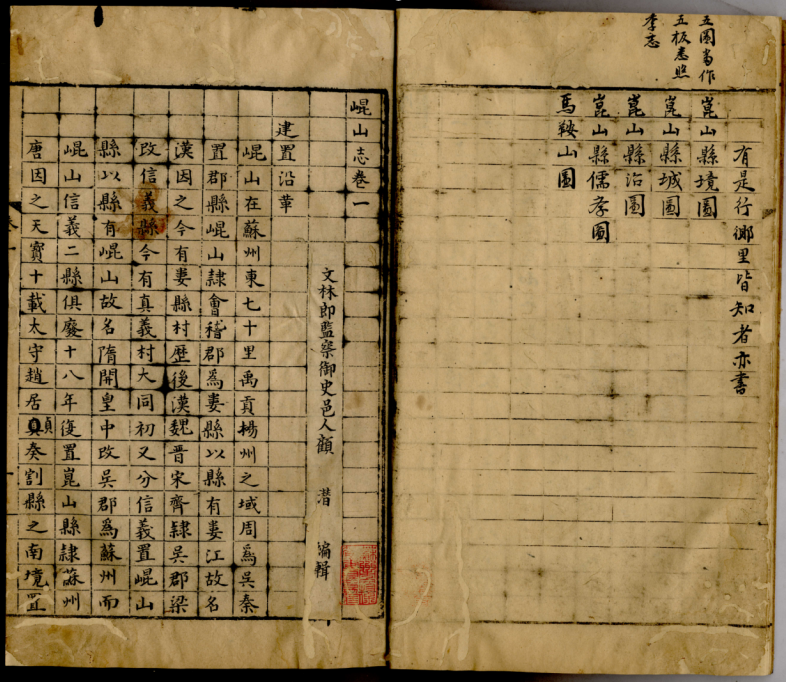 五圖當作
五板悉照
李志
有是行鄉里皆知者亦書
崑山縣境圖
崑山縣城圖
崑山縣治圖
崑山縣儒孝圖
馬鞍山圖
崐山志卷一
文林郎監察御史邑人顧潛編輯
建置沿革
崐山在蘇州東七十里禹貢楊州之域周爲吳秦
置郡縣崐山隸會稽郡爲婁縣以縣有婁江故名
漢因之今有婁縣村歷後漢魏晉宋齊隸吳郡梁
改信義縣今有真義村大同初又分信義置崐山
縣以縣有崐山故名隋開皇中改吳郡爲蘇州而
崐山信義二縣俱廢十八年復置崑山縣隸蘇州
唐因之天寶十載太守趙居貞奏割縣之南境置